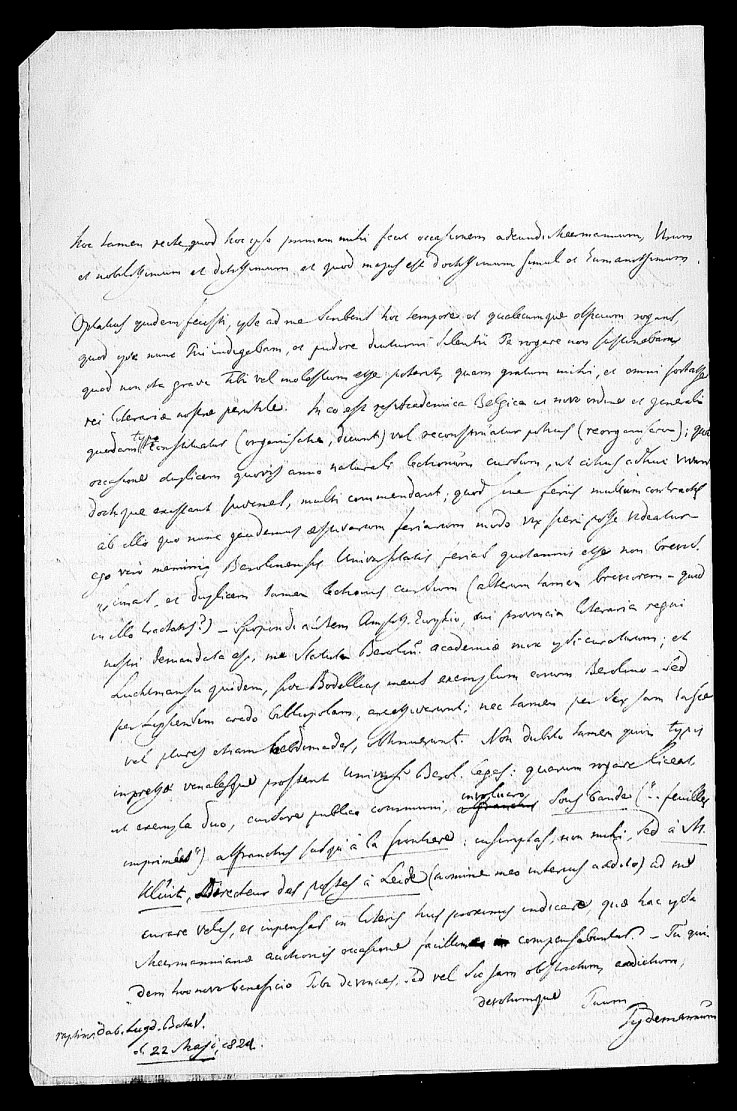 hoc tamen recte, quod hoc ipso primam mihi fecit occasionem adeundi Meermannum, Virum
et nobilissimum et ditissimum, et quod majus est doctissimum simul et humanissimum.
Optatius quidem fecisti, ipse ad me scribens hoc tempore et qualecumque officium rogans,
quod ipse nunc Tui indigebam, et pudore diuturni silentii Te rogare non sustinebam
quod non ita grave Tibi vel molestum esse poterit, quam gratum mihi, et omni fortasse
rei literariae nostrae perutile. In eo est res Academica Belgica ut novo ordine et generali
quodam typo constituatur (organisetur, dicunt) vel reconstituatur potius (reorganisetur); qua
occasione duplicem quovis anno naturali lectionum cursum, ut citius adhuc
doctique exeant juvenes, multi commendant; quod sine feriis multum contractis
ab illo quo nunc gaudemus aestivarum feriarum modo vix fieri posse videatur.
ego vero memini, Berolinensis Universitatis ferias quotannis esse non breves
et duplicem tamen lectionum cursum (alterum tamen breviorem – quid
in illo tractatur?) –
nostri demandata est, me Statuta Berolin. academiae mox ipsi curaturum; et
Luchtmansii quidem, sive Bodellius meus exemplum eorum Berolino – sed
per Lipsiensem credo bibliopolam, arcessiverunt; nec tamen per sex jam
vel plures etiam hebdomades, obtinuerunt. Non dubito tamen quin typis
impressae venalesque prostent Universit. Berol. leges: quarum rogare liceat
ut exempla duo, cursore publico communi, involucro sous bande ("feuilles
imprimées") affranchies jusqu'à la frontière: inscriptas, non mihi, sed à M.
Klüit, Directeur des postes à Leide (nomine meo interius addito) ad me
curare velis, et impensas in literis tuis proximis indicare, quae hac ipsa
Meermannianae auctionis occasione facillime compensabuntur. – Tu qui-
dem hoc novo beneficio Tibi devincies, sed vel sic jam obstrictum, addictum,
devotumque Tuum
Tydemannum
raptim. dab. Lugd. Batav.
d. 22 Maji, 1824.